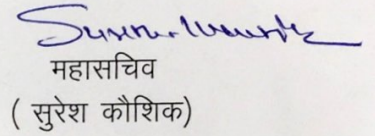 महासचिव
( सुरेश कौशिक)